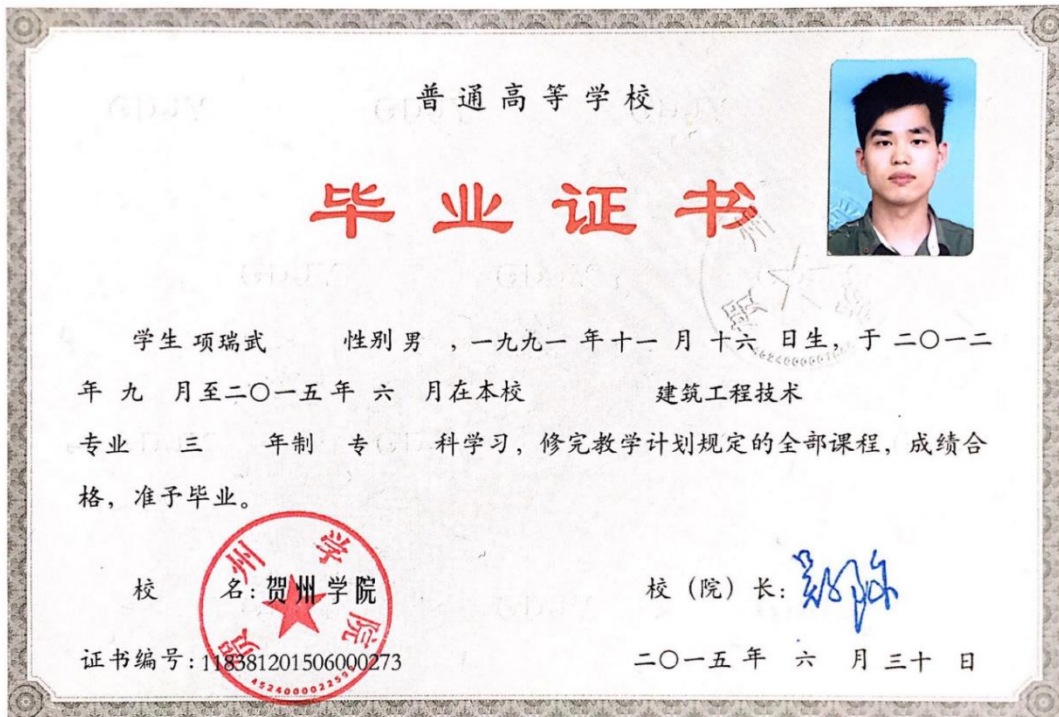 普通高等学校
毕业证书
学生 项瑞武 性别 男 ，一九九一 年 十一 月 十六 日生，于 二〇一二
年 九 月至 二〇一五 年 六 月在本校 建筑工程技术
专业 三 年制 专 科学习，修完教学计划规定的全部课程，成绩合
格，准予毕业。
校 名：贺州学院
校（院）长：
贺州学院
证书编号：118381201506000273
二〇一五 年 六 月 三十 日